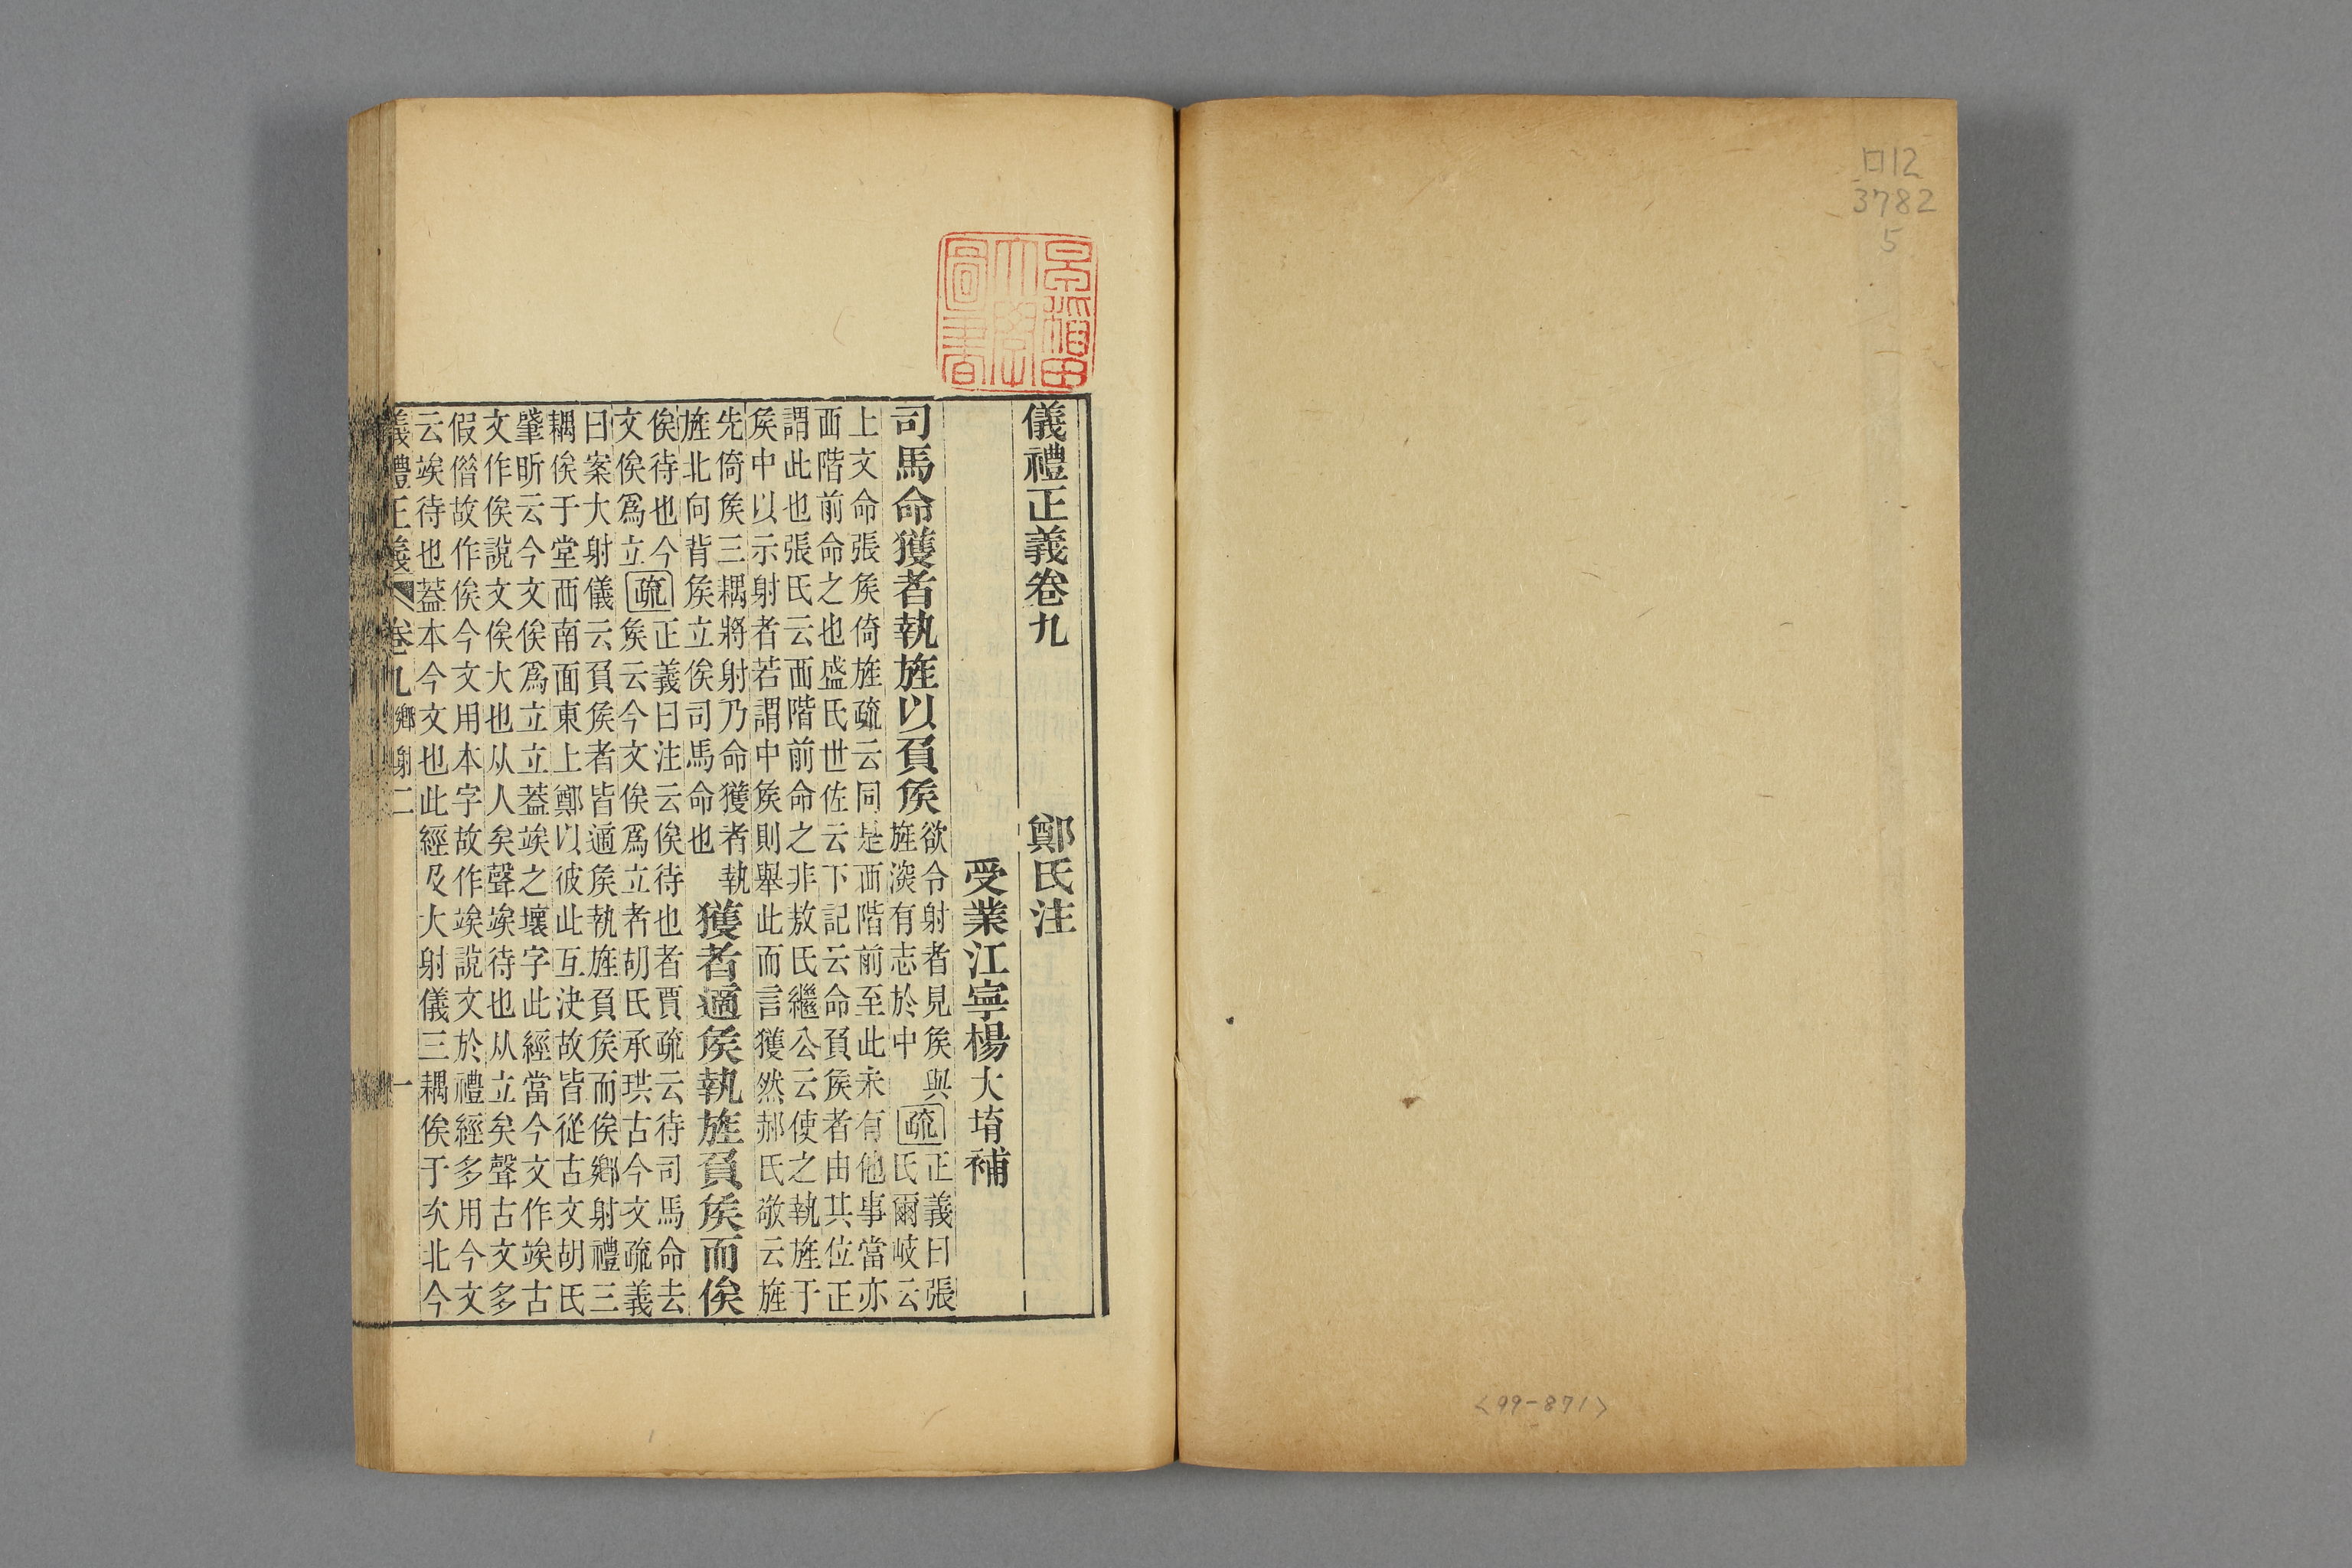 ロ12
3782
5
<99-871>
早稻田大學圖書
儀禮正義卷九 鄭氏注
受業江寧楊大堉補
司馬命獲者執旌以負矦 欲令射者見矦與旌深有志於中 疏 正義曰張氏爾岐云
上文命張矦倚旌疏云同是西階前至此未有他事當亦
西階前命之也盛氏世佐云下記云命負矦者由其位正
謂此也張氏云西階前命之非敖氏繼公云使之執旌于
矦中以示射者若謂中矦則舉此而言獲然郝氏敬云旌
先倚矦三耦將射乃命獲者執
旌北向背矦立俟司馬命也
獲者適矦執旌負矦而俟
俟待也今文俟爲立 疏 正義曰注云俟待也者賈疏云待司馬命去
矦云今文俟爲立者胡氏承珙古今文疏義
曰案大射儀云負矦者皆適矦執旌負矦而俟鄉射禮三
耦俟于堂西南面東上鄭以彼此互決故皆從古文胡氏
肇昕云今文俟爲立立葢竢之壞字此經當今文作竢古
文作俟說文俟大也从人矣聲竢待也从立矣聲古文多
假偺故作俟今文用本字故作竢說文於禮經多用今文
云竢待也葢本今文也此經及大射儀三耦俟于次北今
儀禮正義 卷九 鄉射二 一